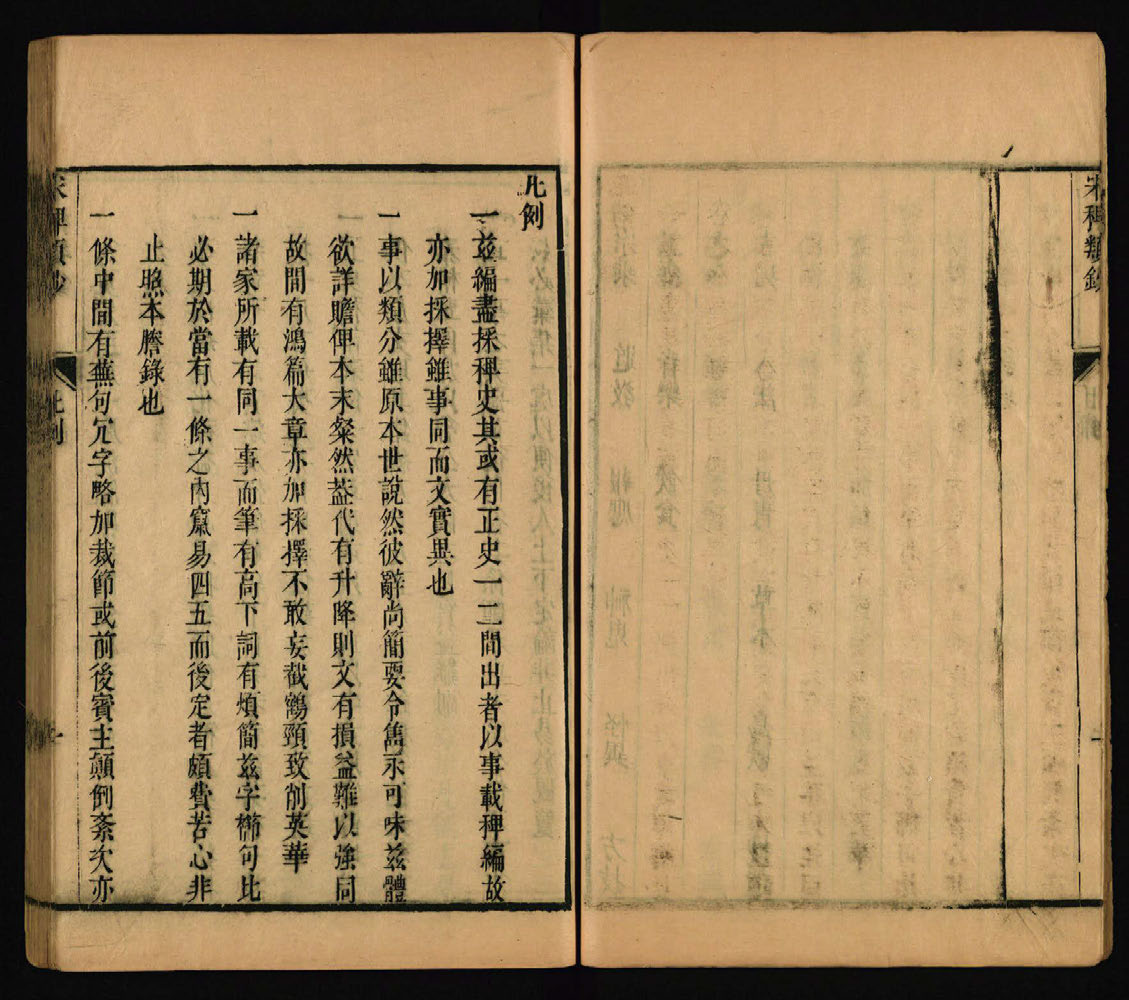 宋稗類鈔
凡例
一茲編盡採稗史其或有正史一二間出者以事載稗編故
亦加採擇雖事同而文實異也
一事以類分雖原本世說然彼辭尚簡要令雋永可味茲體
欲詳贍俾本末粲然葢代有升降則文有損益難以強同
故間有鴻篇大章亦加採擇不敢妄截鶴頸致削英華
一諸家所載有同一事而筆有高下詞有煩簡茲字櫛句比
必期於當有一條之內竄易四五而後定者頗費苦心非
止照本謄錄也
一條中間有蕪句冗字略加裁節或前後賓主顛倒紊次亦
宋稗類鈔
凡例
一